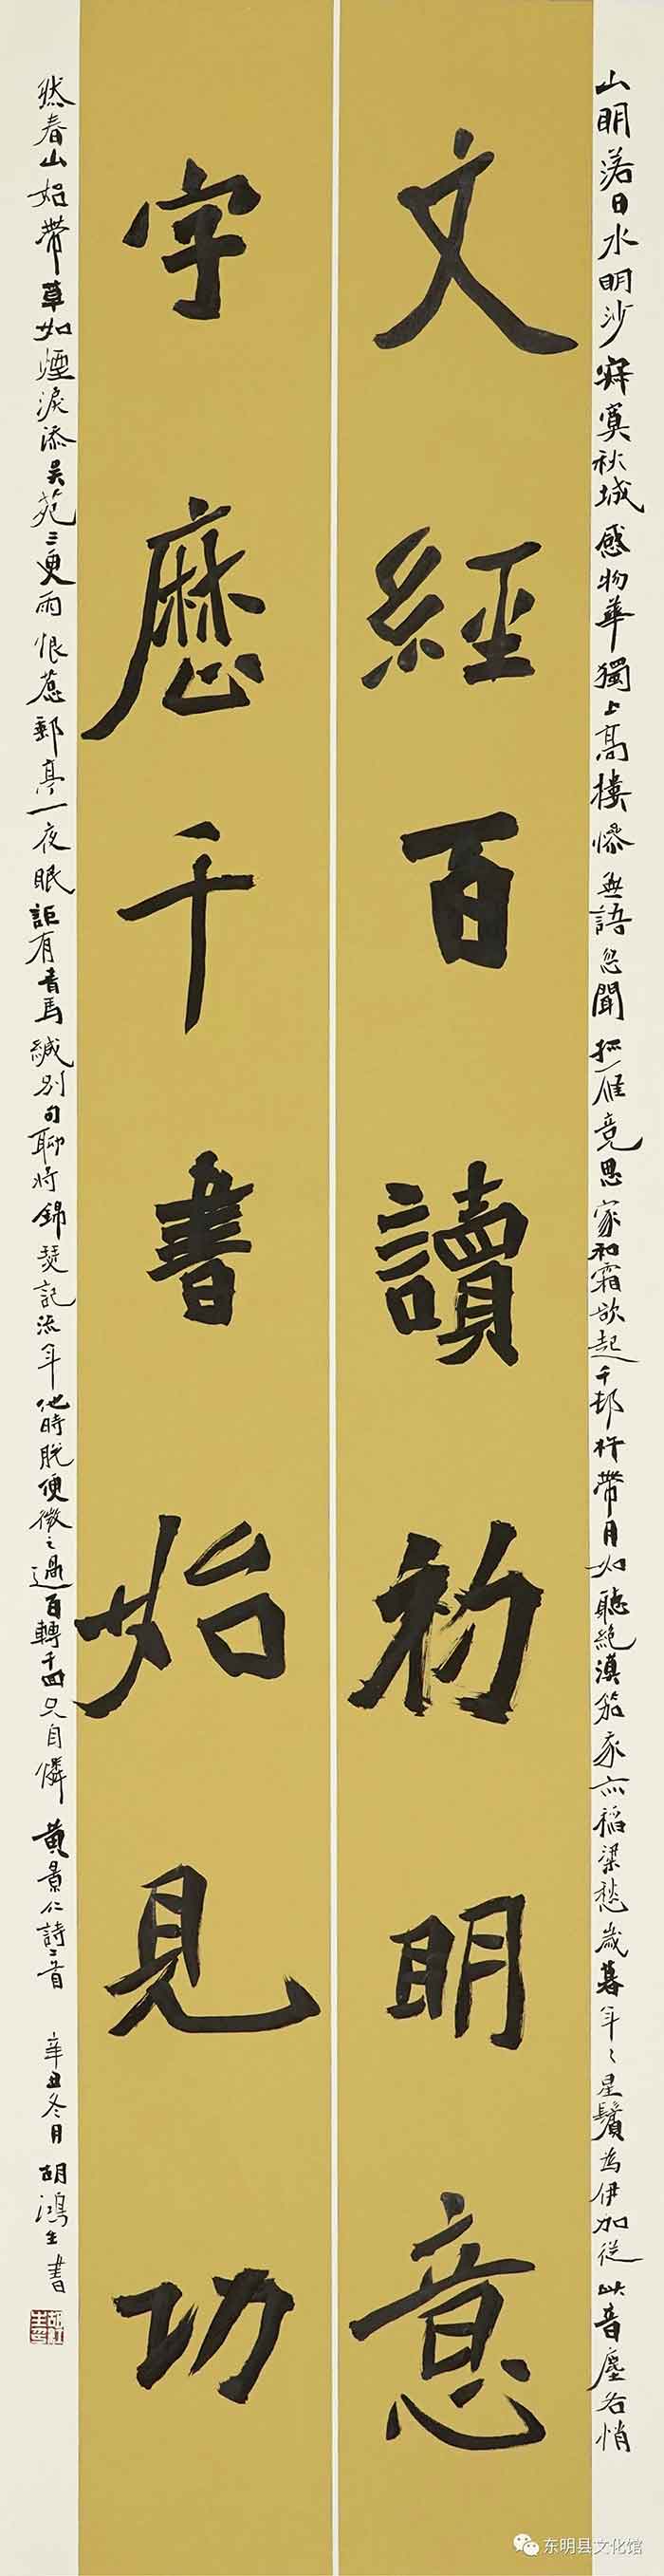 山明落日水明沙寂寞秋城感物華獨上高樓慘無語忽聞孤雁竟思家和霜欲起千村杵帶月如聽絕漠笳我亦稻粱愁歲暮年〻星鬢為伊加從此音塵各悄
文經百讀初明意
字歷千書始見功
然春山如帶草如煙淚添吳苑三更雨恨惹郵亭一夜眠詎有青鳥緘別句聊將錦瑟記流年他時脫便微之過百轉千回只自憐 黃景仁詩二首 辛丑冬月 胡鴻生書
东明县文化馆